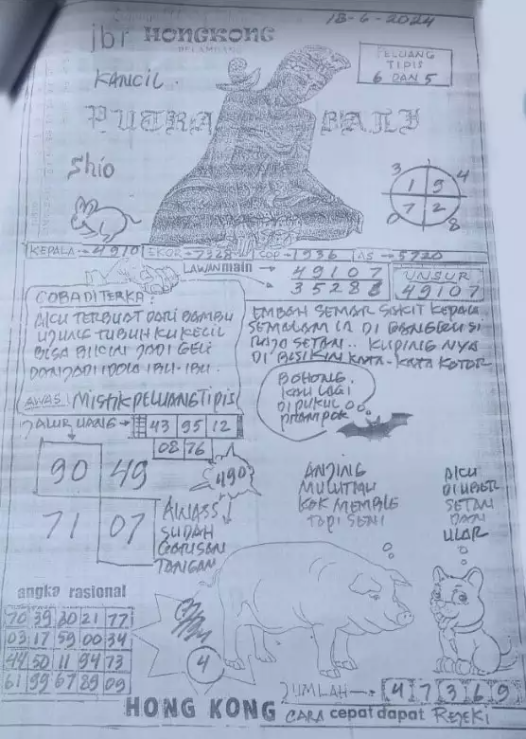 18-6-2024
jbr HONGKONG
KANCIL
PELUANG
TIPIS
6 DAN 5
PUTRA BALI
Shio
3 4
1 5
7 2
0 8
KEPALA → 4910 EKOR → 7328 COP → 1936 AS → 5720
LAWAN main → 49107
→ 35288
UNSUR
49107
COBA DITERKA:
AKU TERBUAT DARI BAMBU
UJUNG TUBUH KU KECIL
BISA BIKIN JADI GELI
DAN JADI IDOLA IBU-IBU.
EMBAH SEMAR SAKIT KEPALA
SEMALAM IA DI GANGGU SI
RAJO SETAN.. KUPING NYA
DI BISIKIN KATA-KATA KOTOR
AWAS! MISTIK PELUANG TIPIS
BOHONG.
KAU LAGI
DI PUKUL
JALUR UANG → 43 95 12
08 76
90 49
490
71 07
AWASS
SUDAH
GARISAN
TANGAN
ANJING
MULUTMU
KOK MEMBLE
TAPI SENI
AKU
DI UBER
SETAN
DAN
ULAR
angka rasional
70 39 30 21 77
03 17 59 00 34
44 50 11 94 73
61 99 67 89 09
4
JUMLAH → 4 7 3 6 9
HONG KONG CARA cepat dapat REJEKI